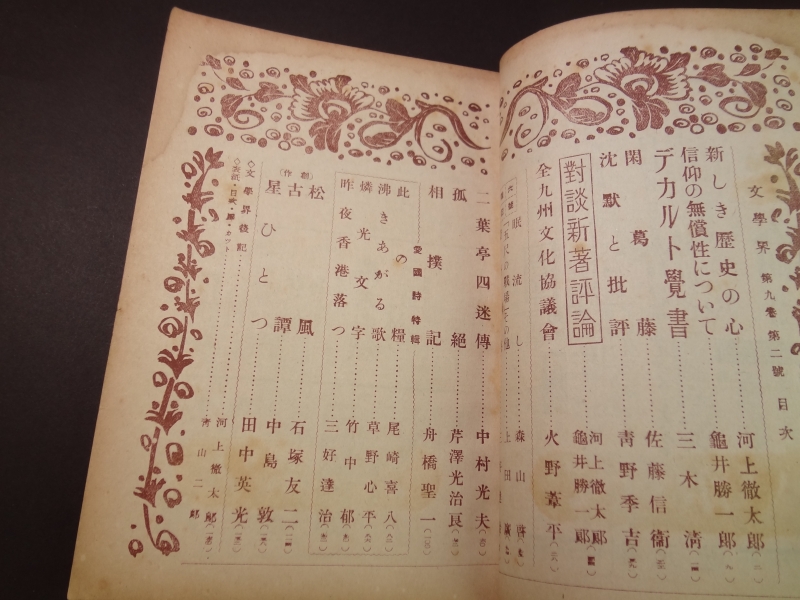 文學界 第九巻 第二號 目次
新しき歷史の心 河上徹太郎
信仰の無償性について 龜井勝一郎
デカルト覺書 三木淸
閑葛藤 佐藤信衞
沈默と批評 靑野季吉
對談新著評論 河上徹太郎 龜井勝一郎
全九州文化協議會 火野葦平
眠流し 森山啓
二葉亭四迷傳 中村光夫
孤絕 芹澤光治良
相撲記 舟橋聖一
愛國詩特輯
此の糧 尾崎喜八
沸きあがる歌 草野心平
燐光文字 竹中郁
昨夜香港落つ 三好達治
創作
松風 石塚友二
古譚 中島敦
星ひとつ 田中英光
◇文學界後記 河上徹太郎
◇表紙・目次・扉・カット 靑山二郎